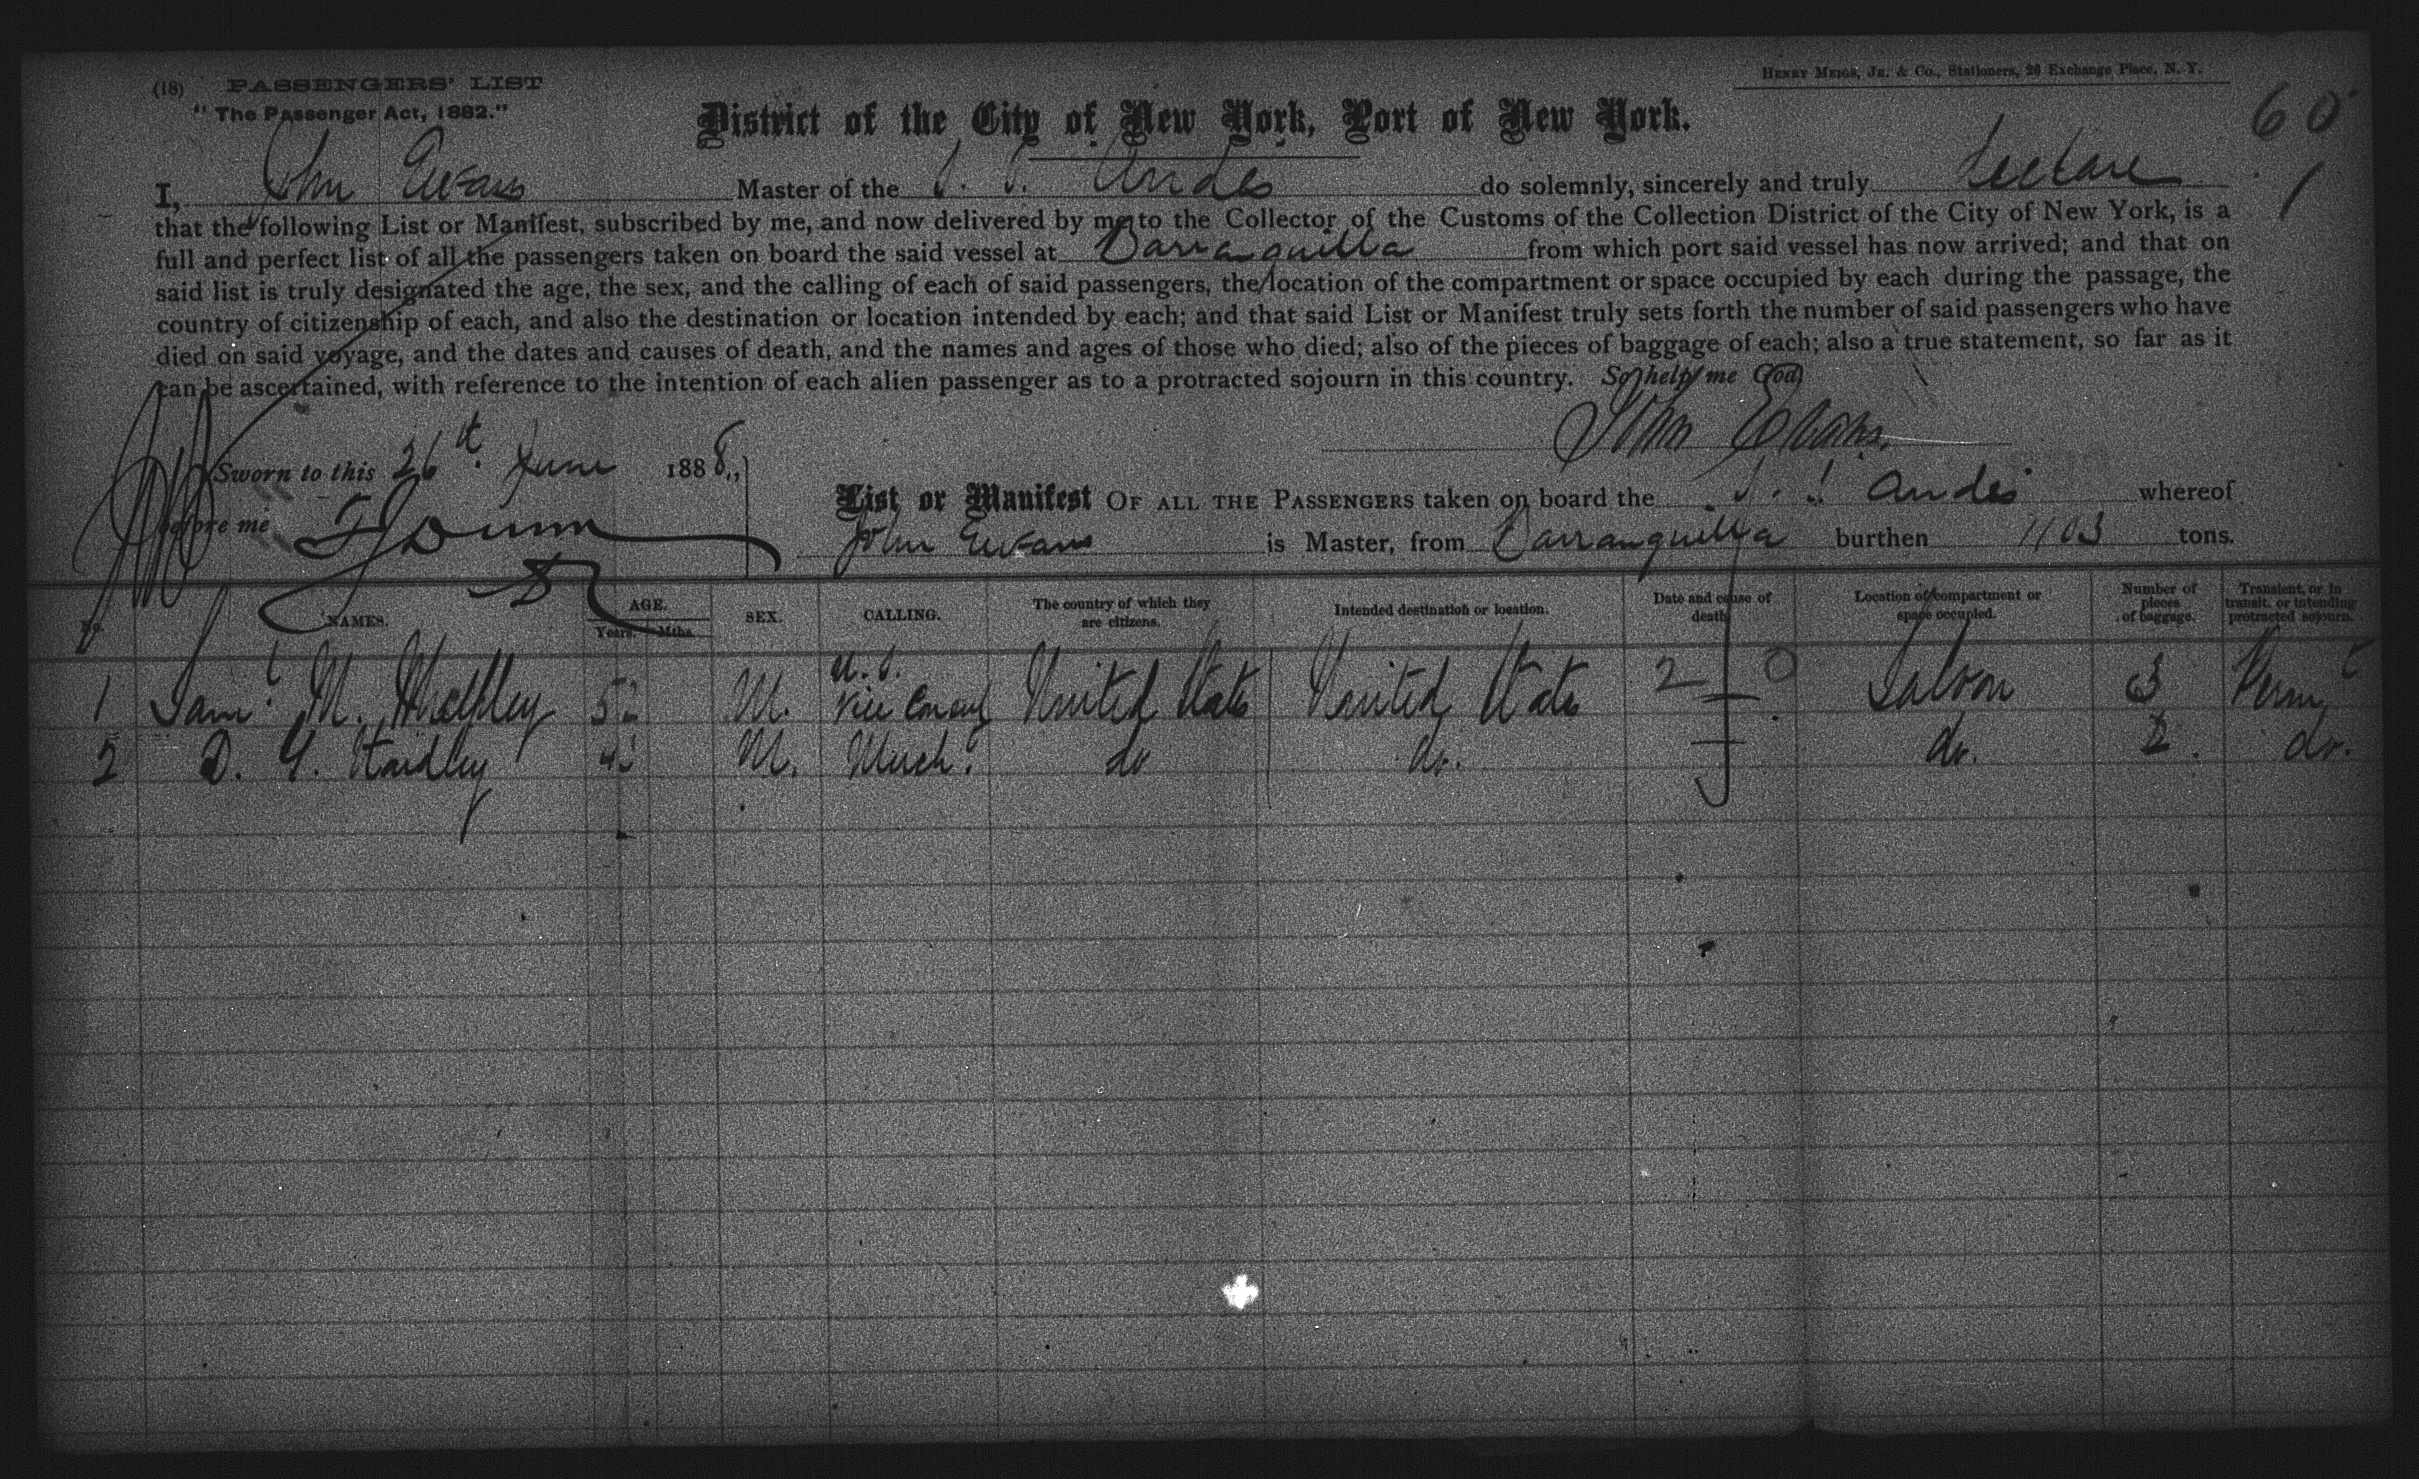 (18) PASSENGERS' LIST
HENRY MEIGS, JR. & Co., Stationers, 26 Exchange Place, N. Y.
"The Passenger Act, 1882."
District of the City of New York, Port of New York.
60
1
I, John Evans Master of the S. S. Andes do solemnly, sincerely and truly declare
that the following List or Manifest, subscribed by me, and now delivered by me to the Collector of the Customs of the Collection District of the City of New York, is a
full and perfect list of all the passengers taken on board the said vessel at Barranquilla from which port said vessel has now arrived; and that on
said list is truly designated the age, the sex, and the calling of each of said passengers, the location of the compartment or space occupied by each during the passage, the
country of citizenship of each, and also the destination or location intended by each; and that said List or Manifest truly sets forth the number of said passengers who have
died on said voyage, and the dates and causes of death, and the names and ages of those who died; also of the pieces of baggage of each; also a true statement, so far as it
can be ascertained, with reference to the intention of each alien passenger as to a protracted sojourn in this country. So help me God
John Evans.
Sworn to this 26th June 1888,
before me
List or Manifest OF ALL THE PASSENGERS taken on board the S. S. Andes whereof
John Evans is Master, from Barranquilla burthen 1103 tons.
No. NAMES. AGE. Years. Mths. SEX. CALLING. The country of which they are citizens. Intended destination or location. Date and cause of death. Location of compartment or space occupied. Number of pieces of baggage. Transient, or in transit, or intending protracted sojourn.
1 Saml. M. M. U. S. Vice Consul United States United States 2 0 Saloon 3 Permt
2 D. Y. M. Mercht do do. do. 2. do.